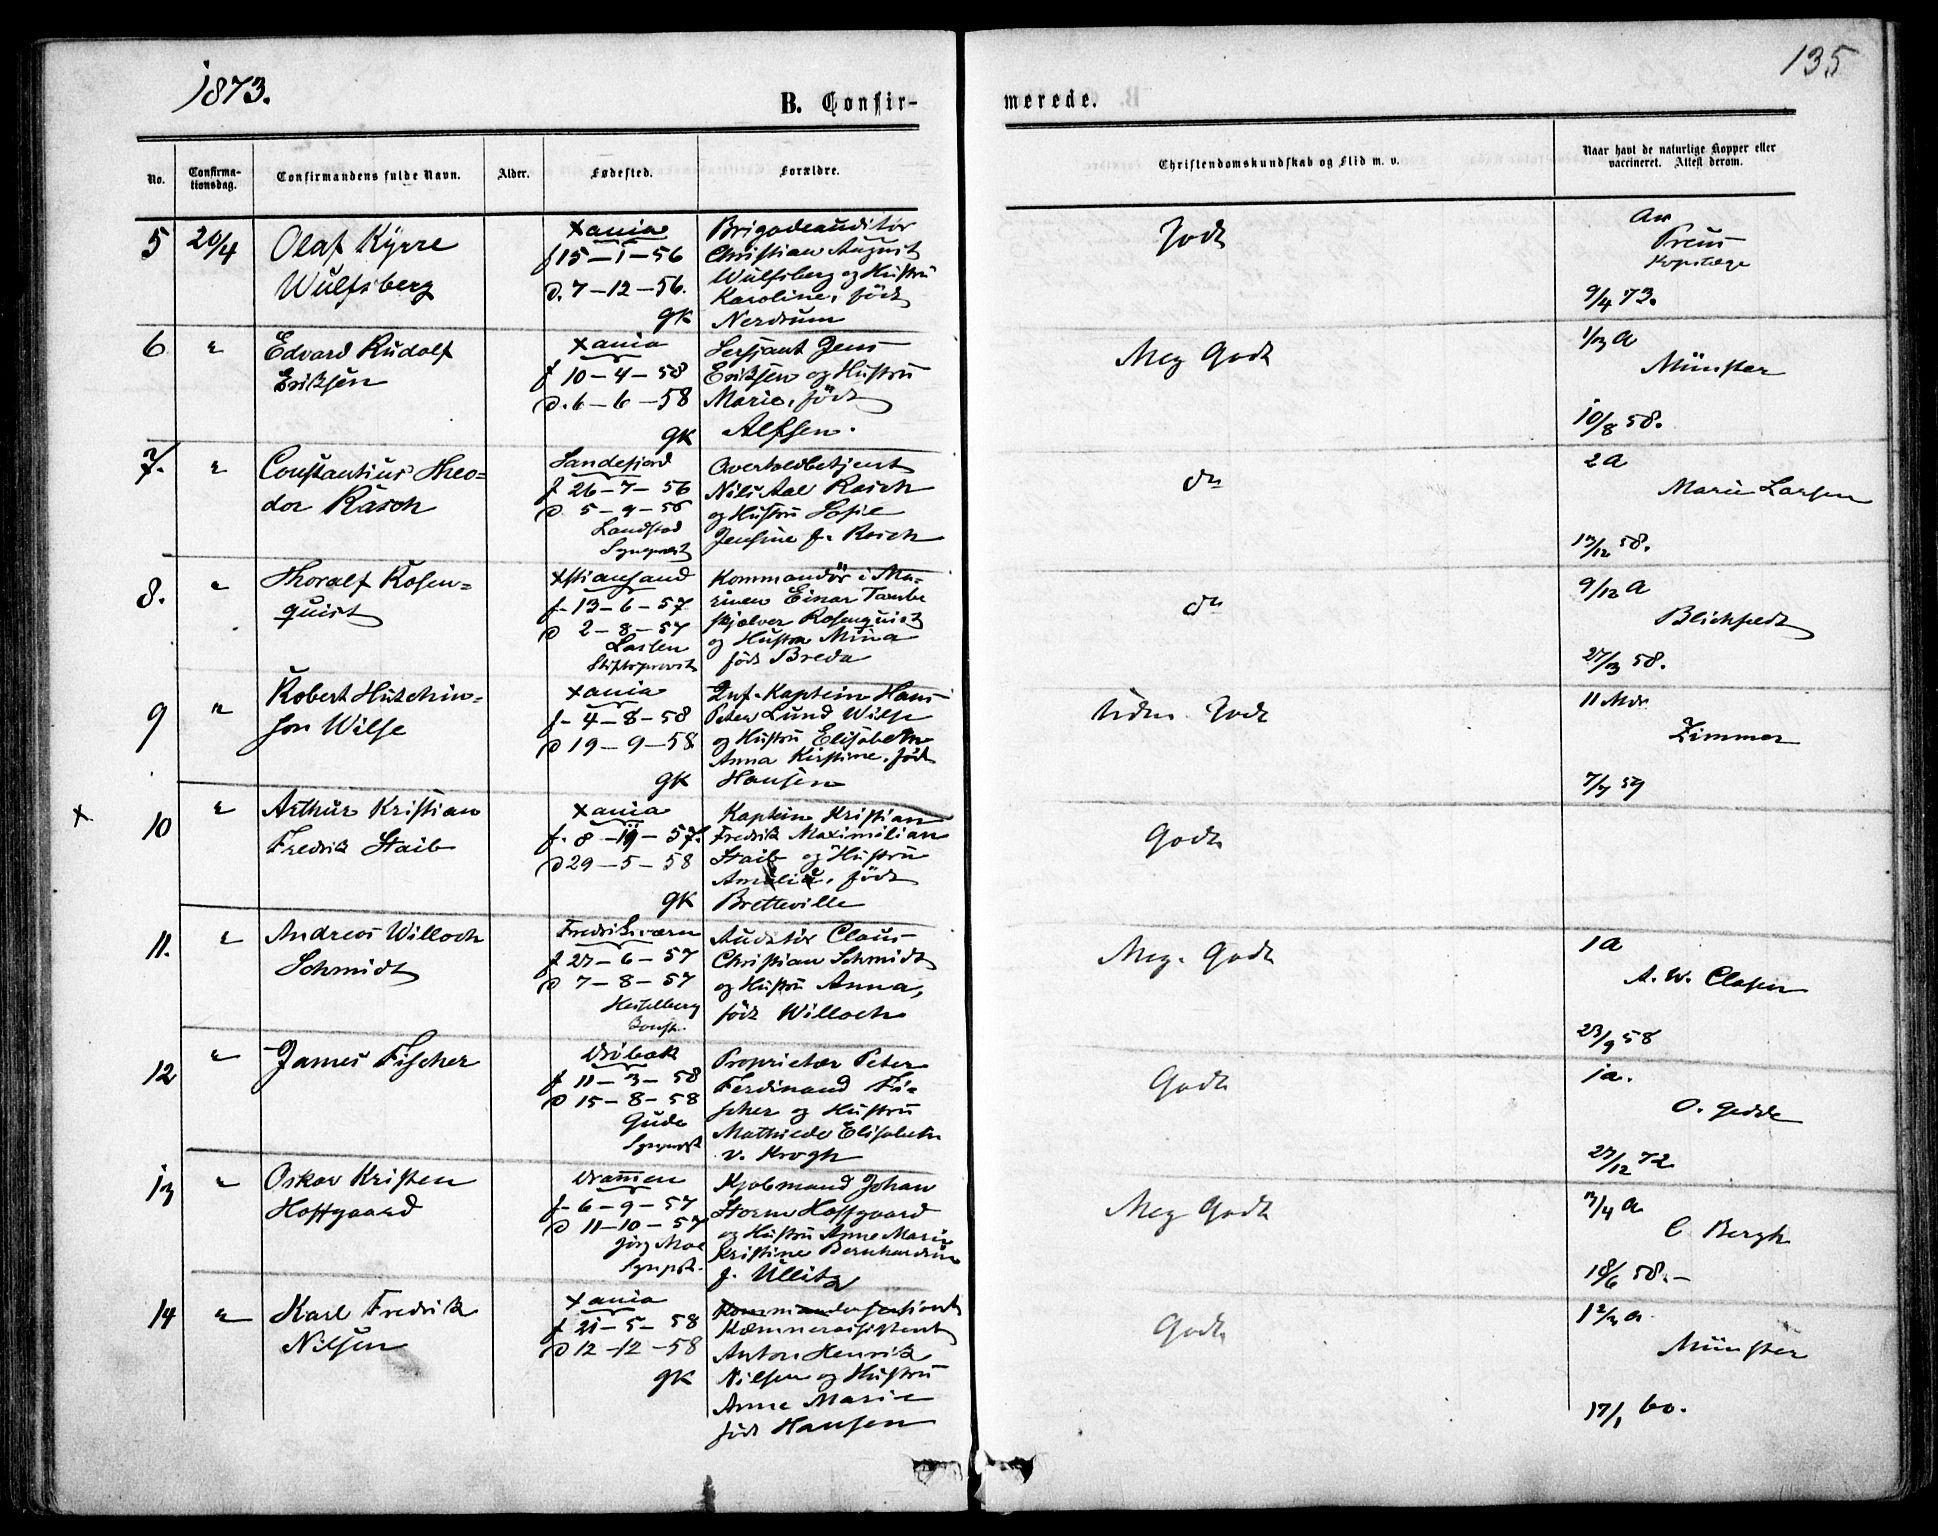 1873.
135
B. Confir-
merede.
No.
Confirma-
tionsdag.
Confirmandens fulde Navn.
Alder.
Fødested.
Forældre.
Christendomskundskab og Flid m. v.
Naar havt de naturlige Kopper eller
vaccineret. Attest derom.
5 20/4 Olaf Kyrre
Wulfsberg
Xania
f 15-1-56
d. 7-12-56.
GK
Brigadeauditør
Christian August
Wulfsberg og Hustru
Karoline, født
Nerdrum
Godt
Preus
9/4 73.
6 " Edvard Rudolf
Eriksen
Xania
f 10-4-58
d. 6-6-58
GK
Sersjant Jens
Eriksen og Hustru
Marie, født
Alfsen.
Meg Godt
Münster
10/8 58.
7. " Constantius Theo-
dor Rasch
Sandefjord
f 26-7-56
d 5-9-56
Landstad
Sognepræst
Overtoldbetjent
Nils Aal Rasch
og Hustru Sofie
Jensine f. Rasch
do
2 a
Marie Larsen
13/12 58.
8. " Thoralf Rosen-
quist
Xstiansand
f. 13-6-57
d 2-8-57
Lassen
Stiftsprovst
Kommandør i Ma-
rinen Einar Tambe
skjælver Rosenquist
og Hustru Mina
født Breda
do
9/12 a
Blichfeldt
27/3 58.
9 " Robert Hutchin-
son Wilse
Xania
f. 4-8-58
d 19-9-58
GK
Inf. Kaptein Hans
Peter Lund Wilse
og Hustru Elisabeth
Anna Kirstine, født
Hansen
Uden. Godt
11 Mdr
Zimmer
7/7 59
X 10 " Arthur Kristian
Fredrik Staib
Xania
f. 8-11-57.
d 29-5-58
GK
Kaptein Kristian
Fredrik Maximilian
Staib og Hustru
Amalia, født
Bretteville
Godt
11. " Andreas Willoch
Schmidt
Fredriksværn
f 27-6-57
d 7-8-57
Hesselberg
Auditør Claus
Christian Schmidt
og Hustru Anna,
født Willoch
Meg. Godt
1 a
A. W. Clasen
23/9 58
12 " James Fischer
Drøbak
f 11-3-58
d 15-8-58
Gude
Sognepræst
Proprietær Peter
Ferdinand Fi-
scher og Hustru
Mathilde Elisabeth
v. Krogh
Godt
1 a.
O. Gedde
27/12 72
13 " Oskar Kristen
Hoffgaard
Dramen
f. 6-9-57
d 11-10-57
Jørg Moe
Sognpst.
Kjøbmand Johan
Storm Hoffgaard
og Hustru Anne Marie
Kristine Bernhardine
f. Ullitz
Meg Godt
3/4 a
C Bergh
18/6 58.-
14 " Karl Fredrik
Nilsen
Xania
f 21-5-58
d 12-12-58
GK
Kæmnerassistent
Anton Henrik
Nilsen og Hustru
Anne Marie
født Hansen
Godt
1 2/3 a
Münster
17/1 60.